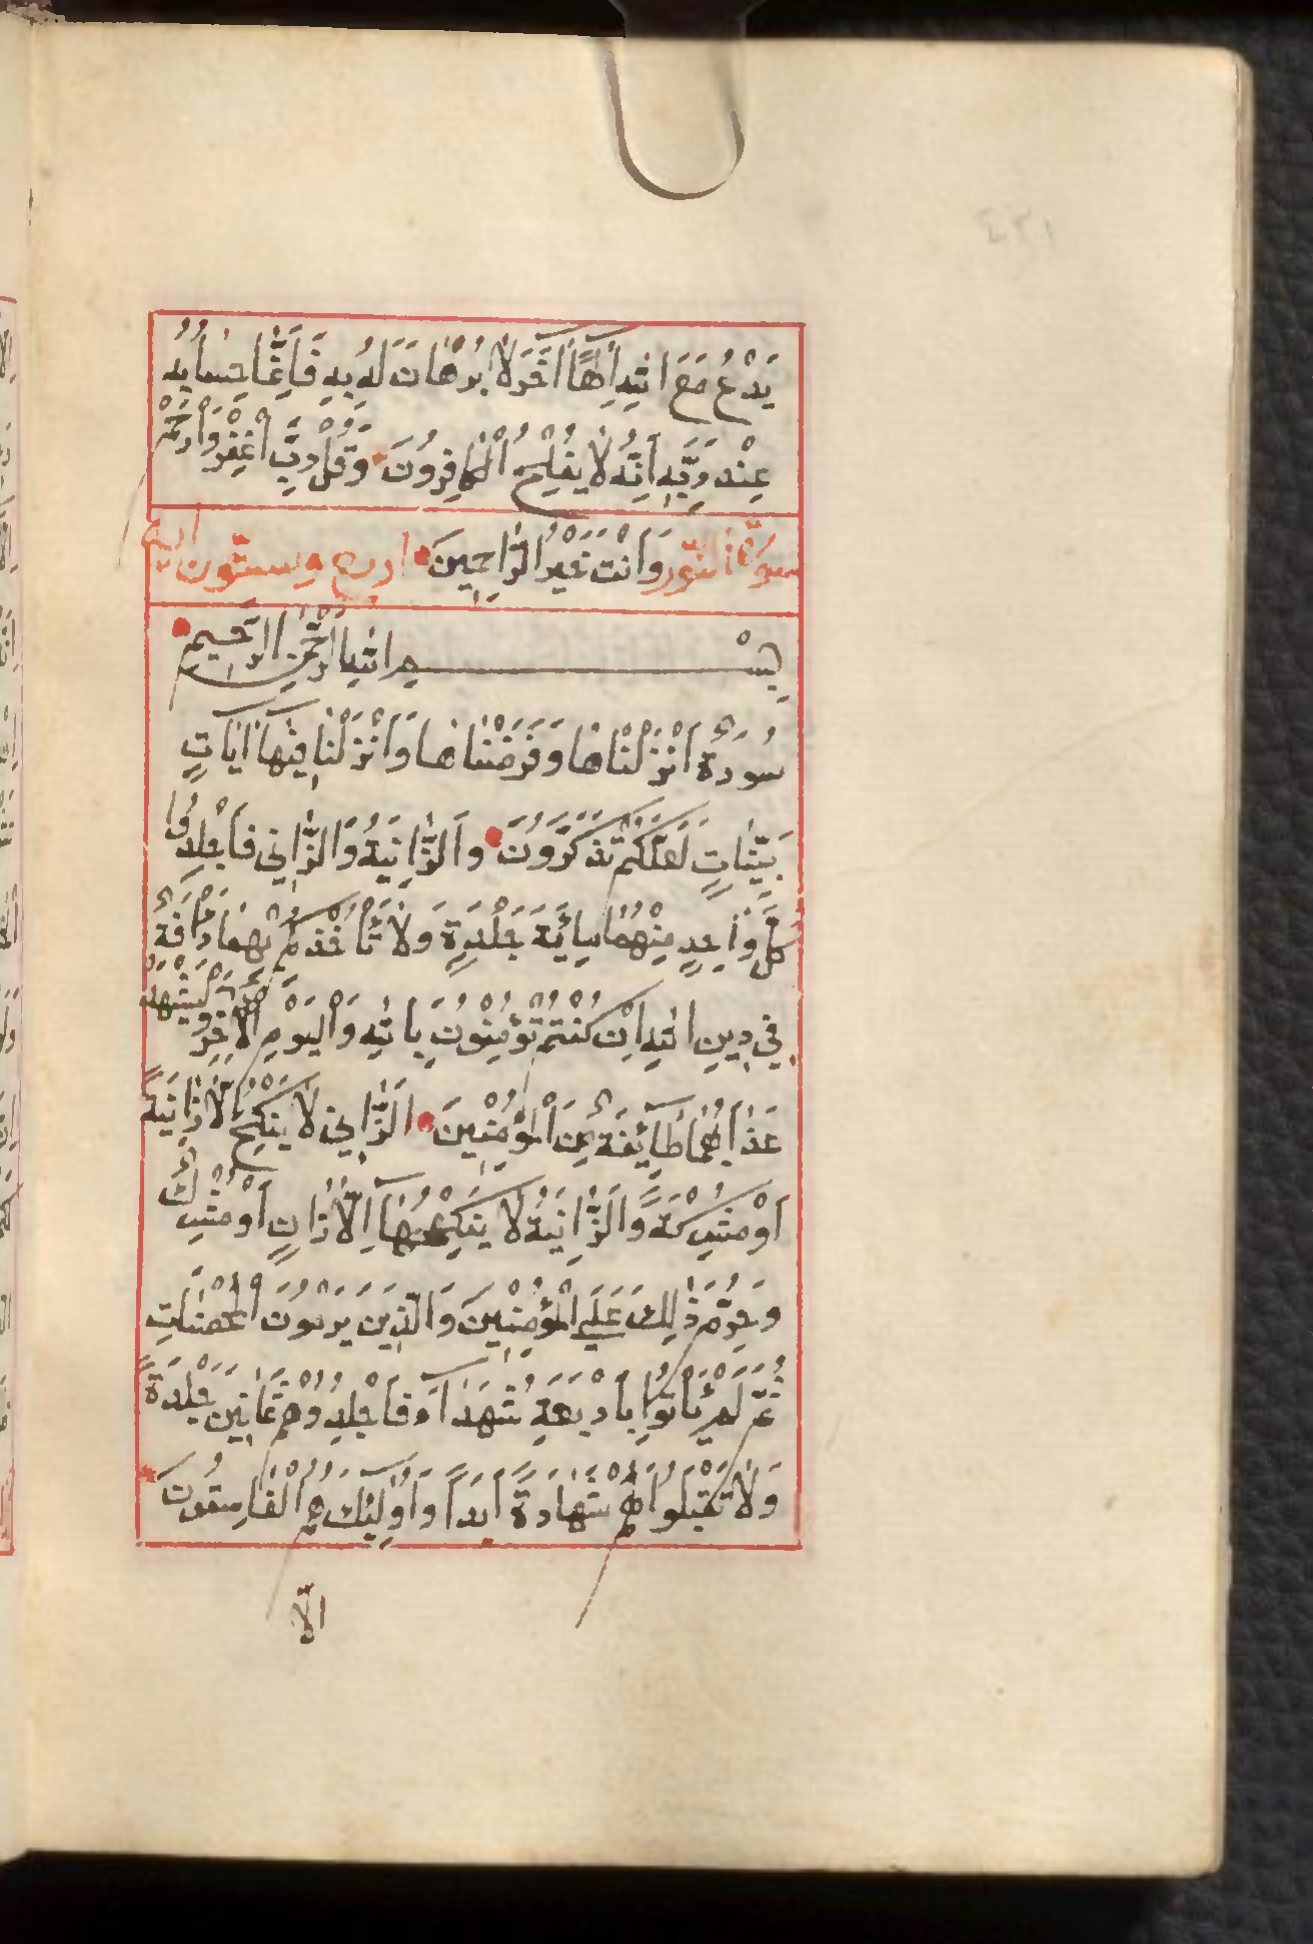 يَدْعُ مَعَ اللهِ اِلٰهًا اٰخَرَ لَا بُرْهَانَ لَهُ بِهِ فَاِنَّمَا حِسَابُهُ
عِنْدَ رَبِّهِ اِنَّهُ لَا يُفْلِحُ الْكَافِرُونَ وَقُلْ رَبِّ اغْفِرْ وَارْحَمْ
سورة النّور وَاَنْتَ خَيْرُ الرَّاحِمِينَ اربع وستّون اية
بِسْمِ اللهِ الرَّحْمٰنِ الرَّحِيمِ
سُورَةٌ اَنْزَلْنَاهَا وَفَرَضْنَاهَا وَاَنْزَلْنَا فِيهَا اٰيَاتٍ
بَيِّنَاتٍ لَعَلَّكُمْ تَذَكَّرُونَ وَالزَّانِيَةُ وَالزَّانِي فَاجْلِدُوا
كُلَّ وَاحِدٍ مِنْهُمَا مِائَةَ جَلْدَةٍ وَلَا تَأْخُذْكُمْ بِهِمَا رَأْفَةٌ
فِي دِينِ اللهِ اِنْ كُنْتُمْ تُؤْمِنُونَ بِاللهِ وَالْيَوْمِ الْاٰخِرِ وَلْيَشْهَدْ
عَذَابَهُمَا طَائِفَةٌ مِنَ الْمُؤْمِنِينَ الزَّانِي لَا يَنْكِحُ اِلَّا زَانِيَةً
اَوْ مُشْرِكَةً وَالزَّانِيَةُ لَا يَنْكِحُهَا اِلَّا زَانٍ اَوْ مُشْرِكٌ
وَحُرِّمَ ذٰلِكَ عَلَي الْمُؤْمِنِينَ وَالَّذِينَ يَرْمُونَ الْمُحْصَنَاتِ
ثُمَّ لَمْ يَأْتُوا بِاَرْبَعَةِ شُهَدَاءَ فَاجْلِدُوهُمْ ثَمَانِينَ جَلْدَةً
وَلَا تَقْبَلُوا لَهُمْ شَهَادَةً اَبَدًا وَاُولٰئِكَ هُمُ الْفَاسِقُونَ
الّا